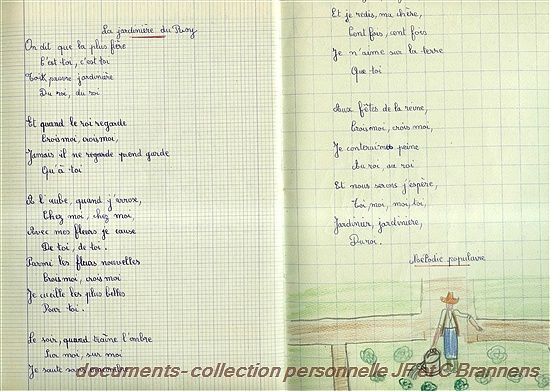 La jardinière du Roy
On dit que la plus fière
C'est toi, c'est toi
pauvre jardinière
Du roi, du roi
Et quand le roi regarde
Crois moi, crois moi,
Jamais il ne regarde prend garde
Qu'à toi
A l'aube, quand j'arrose,
Chez moi, chez moi,
Avec mes fleurs je cause
De toi, de toi.
Parmi les fleurs nouvelles
Crois moi, crois moi
Je cueille les plus belles
Pour toi.
Le soir, quand traîne l'ombre
Sur moi, sur moi
Je saute sans
Et je redis, ma chère,
Cent fois, cent fois
Je n'aime sur la terre
Que toi
Aux fêtes de la reine,
Crois moi, crois moi,
Je conterai mes peine
Au roi, au roi
Et nous serons j'espère,
Toi, moi, moi, toi,
Jardinier, jardinière,
Du roi.
Mélodie populaire
documents- collection personnelle JF&LC Brannens